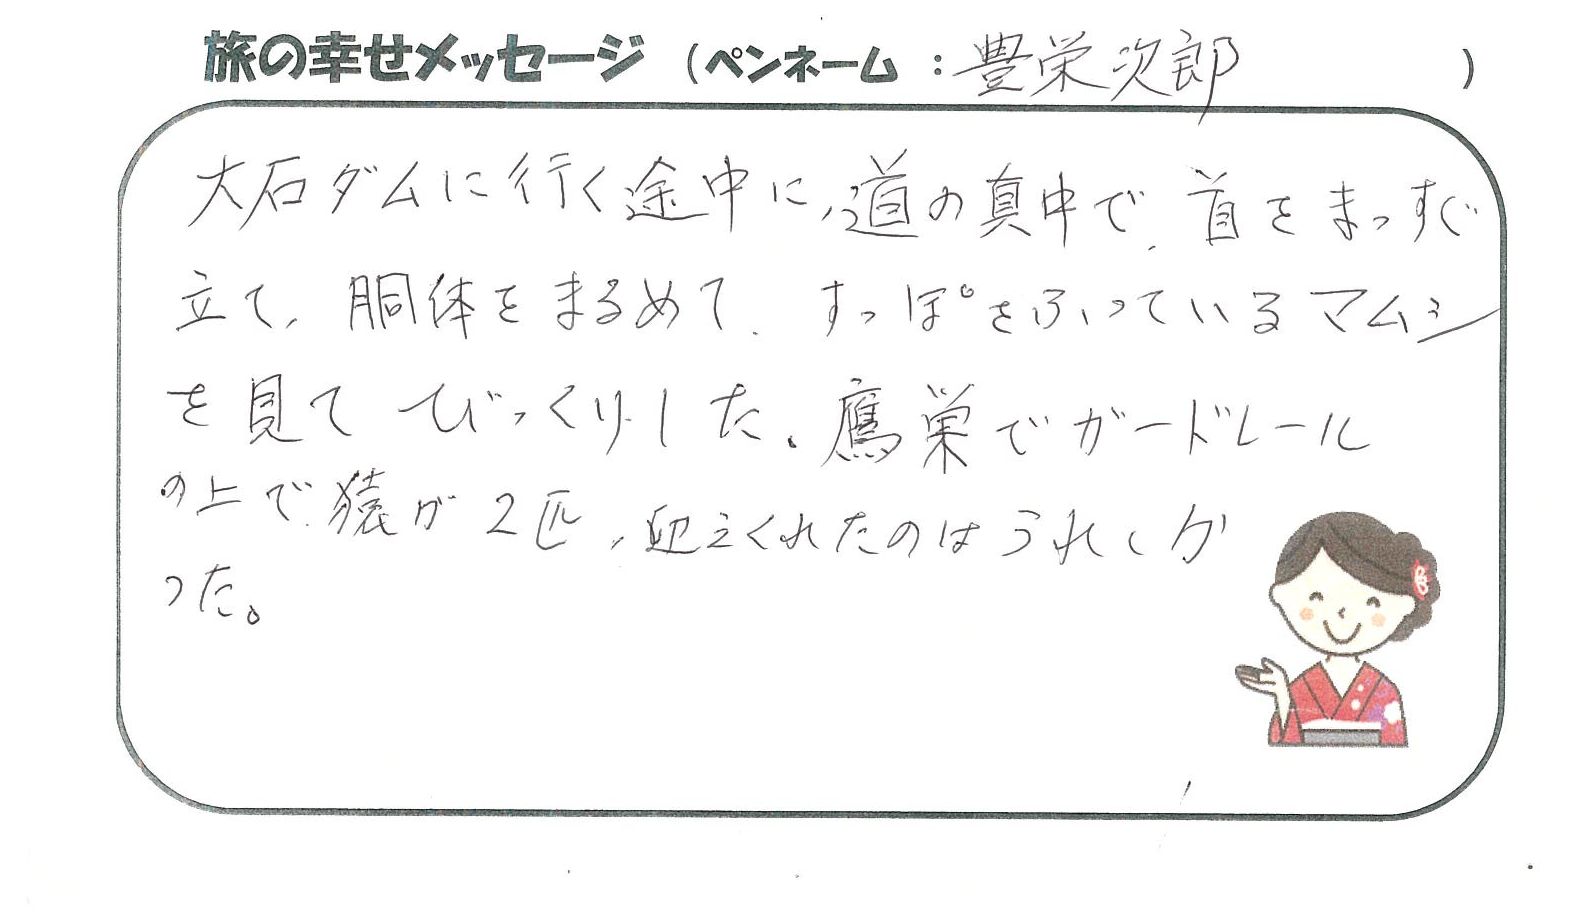 旅の幸せメッセージ (ペンネーム : 豊栄次郎 )
大石ダムに行く途中に、道の真中で、首をまっすぐ
立て、胴体をまるめて、すっぽをふっているマムシ
を見てびっくりした。鷹巣でガードレール
の上で猿が2匹、迎えくれたのはうれしか
った。